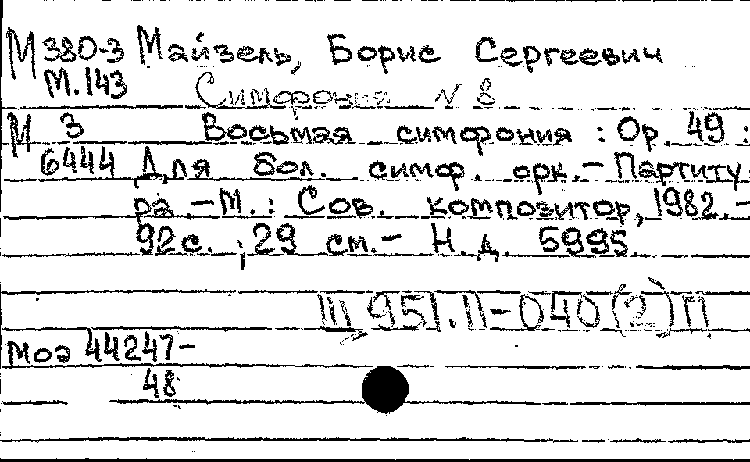 М 380-3 Майзель, Борис Сергеевич
М.143 Симфония N 8
М 3 Восьмая симфония : Op. 49 :
6444 Для бол. симф. орк.– Партиту-
ра.–М.: Сов. композитор, 1982.–
92с. ; 29 см.– Н.д. 5995.
III 951.II-040(2)П
Моэ 44247–
48